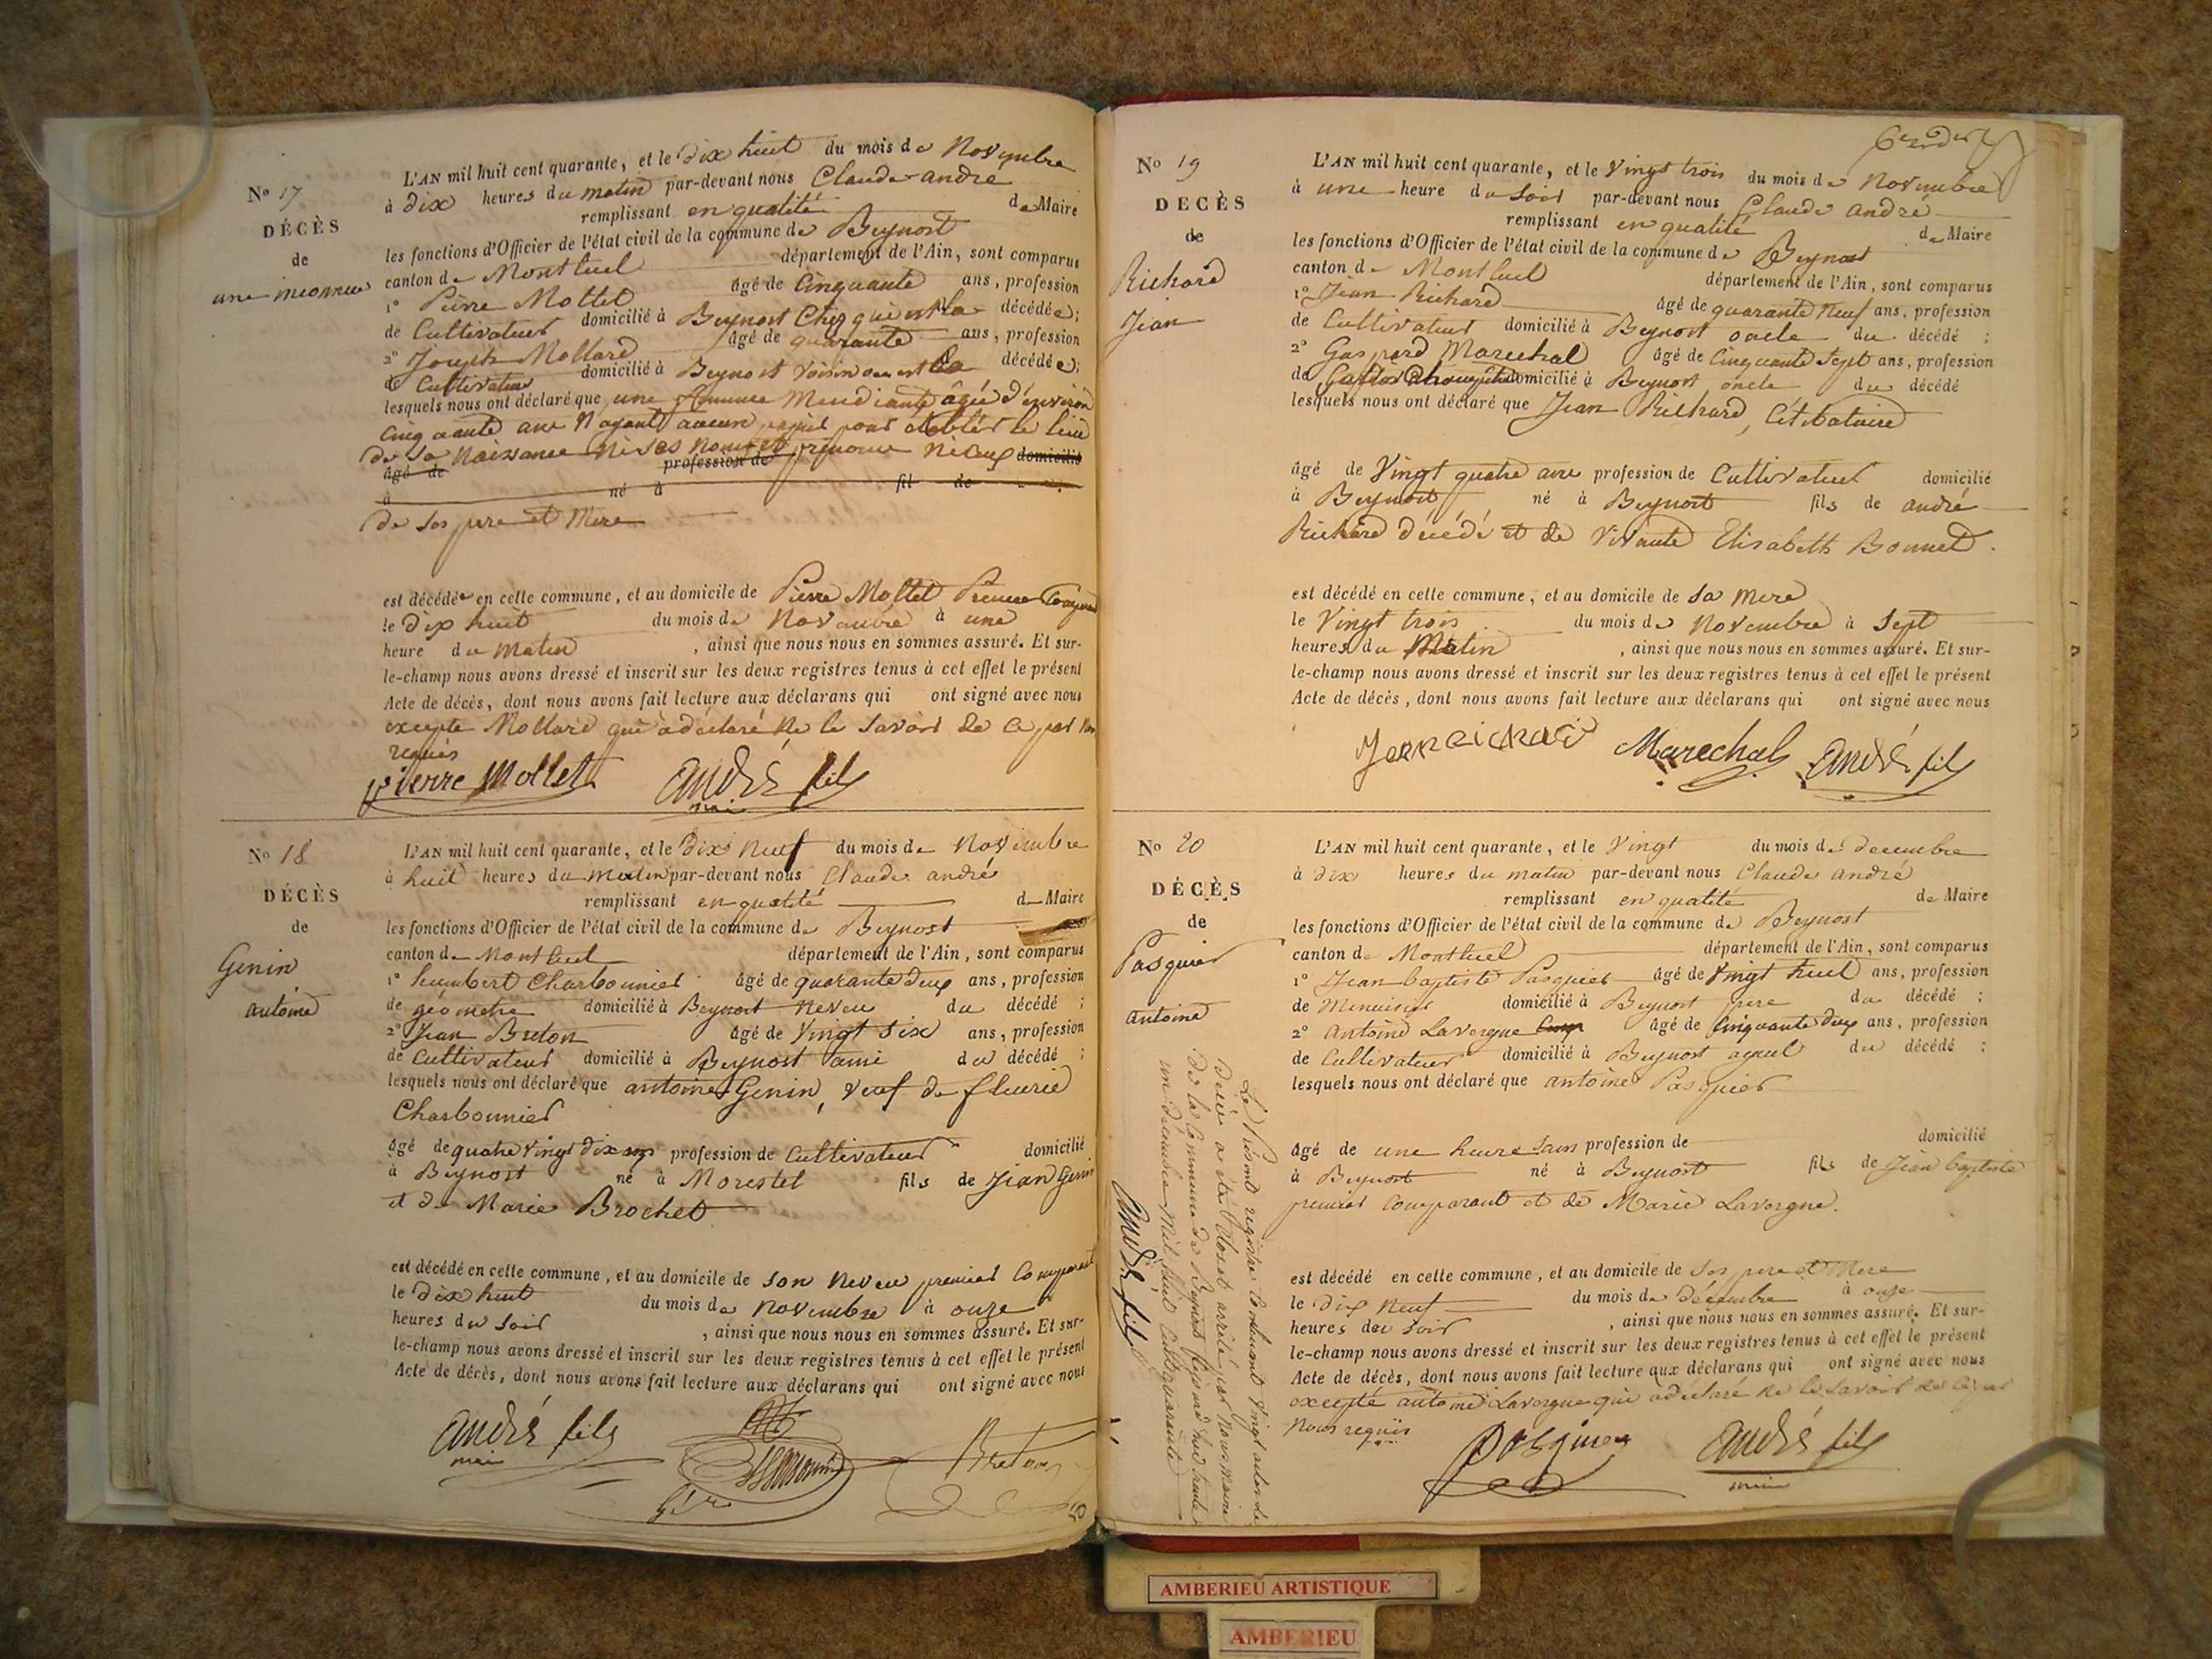 No 17
DÉCÈS
de
une inconnue
L'AN mil huit cent quarante, et le dix huit du mois de Novembre
à dix heures du matin par-devant nous Claude andré
remplissant en qualité de Maire
les fonctions d'Officier de l'état civil de la commune de Beynost
canton de Montluel département de l'Ain, sont comparus
1° Pierre Mollet âgé de Cinquante ans, profession
de Cultivateur domicilié à Beynost Chez qui est la décédée;
2° Joseph Mollard âgé de quarante ans, profession
de Cultivateur domicilié à Beynost voisin de la décédée;
lesquels nous ont déclaré que une femme Mendiante âgée d'environ
Cinquante ans N'ayant aucun papier pour établir le lieu
de sa Naissance Ni ses Noms et prénoms Ni ceux domicilié
âgé de profession de
à né à fil de
de ses pere et Mere
est décédée en cette commune, et au domicile de Pierre Mollet Premier Comparant
le dix huit du mois de Novembre à une
heure du matin, ainsi que nous nous en sommes assuré. Et sur-
le-champ nous avons dressé et inscrit sur les deux registres tenus à cet effet le présent
Acte de décès, dont nous avons fait lecture aux déclarans qui ont signé avec nous
excepté Mollard qui a déclaré Ne le savoir de ce par Nous
requis
Pierre Mollet André fils
maire
No 18
DÉCÈS
de
Genin
antoine
L'AN mil huit cent quarante, et le Dix Neuf du mois de Novembre
à huit heures du Matin par-devant nous Claude andré
remplissant en qualité de Maire
les fonctions d'Officier de l'état civil de la commune de Beynost
canton de Montluel département de l'Ain, sont comparus
1° humbert Charbonnier âgé de quarante deux ans, profession
de géomètre domicilié à Beynost Neveu du décédé;
2° Jean Breton âgé de Vingt Six ans, profession
de Cultivateur domicilié à Beynost ami du décédé;
lesquels nous ont déclaré que antoine Genin, veuf de fleurie
Charbonnier
âgé de quatre Vingt dix ans profession de Cultivateur domicilié
à Beynost né à Morestel fils de Jean Genin
et de Marie Brochet
est décédé en cette commune, et au domicile de son Neveu premier Comparant
le dix huit du mois de Novembre à onze
heures du Soir, ainsi que nous nous en sommes assuré. Et sur-
le-champ nous avons dressé et inscrit sur les deux registres tenus à cet effet le présent
Acte de décès, dont nous avons fait lecture aux déclarans qui ont signé avec nous
André fils Breton
maire
No 19
DECÈS
de
Richard
Jean
L'AN mil huit cent quarante, et le Vingt trois du mois de Novembre
à une heure du Soir par-devant nous Claude andré
remplissant en qualité de Maire
les fonctions d'Officier de l'état civil de la commune de Beynost
canton de Montluel département de l'Ain, sont comparus
1° Jean Richard âgé de quarante Neuf ans, profession
de Cultivateur domicilié à Beynost oncle du décédé;
2° Gaspard Marechal âgé de Cinquante Sept ans, profession
de domicilié à Beynost oncle du décédé
lesquels nous ont déclaré que Jean Richard, Célibataire
âgé de Vingt quatre ans profession de Cultivateur domicilié
à Beynost né à Beynost fils de andré
Richard décédé et de Vivante Elisabeth Bonnet.
est décédé en cette commune, et au domicile de sa mere
le Vingt trois du mois de Novembre à Sept
heures du Matin, ainsi que nous nous en sommes assuré. Et sur-
le-champ nous avons dressé et inscrit sur les deux registres tenus à cet effet le présent
Acte de décès, dont nous avons fait lecture aux déclarans qui ont signé avec nous
Marechal André fils
No 20
DÉCÈS
de
Pasquier
antoine
L'AN mil huit cent quarante, et le Vingt du mois de decembre
à dix heures du matin par-devant nous Claude andré
remplissant en qualité de Maire
les fonctions d'Officier de l'état civil de la commune de Beynost
canton de Montluel département de l'Ain, sont comparus
1° Jean baptiste Pasquier âgé de Vingt huit ans, profession
de Menuisier domicilié à Beynost pere du décédé;
2° Antoine Lavergne âgé de Cinquante deux ans, profession
de Cultivateur domicilié à Beynost ayeul du décédé;
lesquels nous ont déclaré que antoine Pasquier
âgé de une heure Sans profession de domicilié
à Beynost né à Beynost fils de Jean baptiste
premier Comparant et de Marie Lavergne.
est décédé en cette commune, et au domicile de Ses pere et Mere
le Dix Neuf du mois de décembre à onze
heures du Soir, ainsi que nous nous en sommes assuré. Et sur-
le-champ nous avons dressé et inscrit sur les deux registres tenus à cet effet le présent
Acte de décès, dont nous avons fait lecture aux déclarans qui ont signé avec nous
excepté antoine Lavergne qui a déclaré ne le savoir de ce par
Nous requis
Pasquier André fils
maire
Le Présent registre Contenant Vingt actes de
Décès a été Clos et arrêté par Nous Maire
De la Commune de Beynost aujourd'hui trente
un decembre Mil huit Cent quarante
André fils
AMBERIEU ARTISTIQUE
AMBERIEU